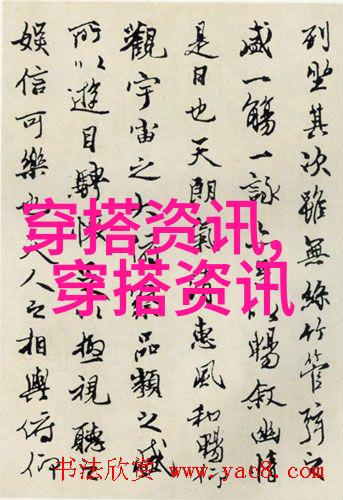 列坐其次雖無絲竹管弦之
盛一觴一詠亦足以暢敘幽情
是日也天朗氣清惠風和暢仰
觀宇宙之大俯察品類之盛
所以遊目騁懷足以極視聽之
娛信可樂也夫人之相與俯仰
穿搭资讯,
穿搭资讯
书法欣赏 www.yac8.com